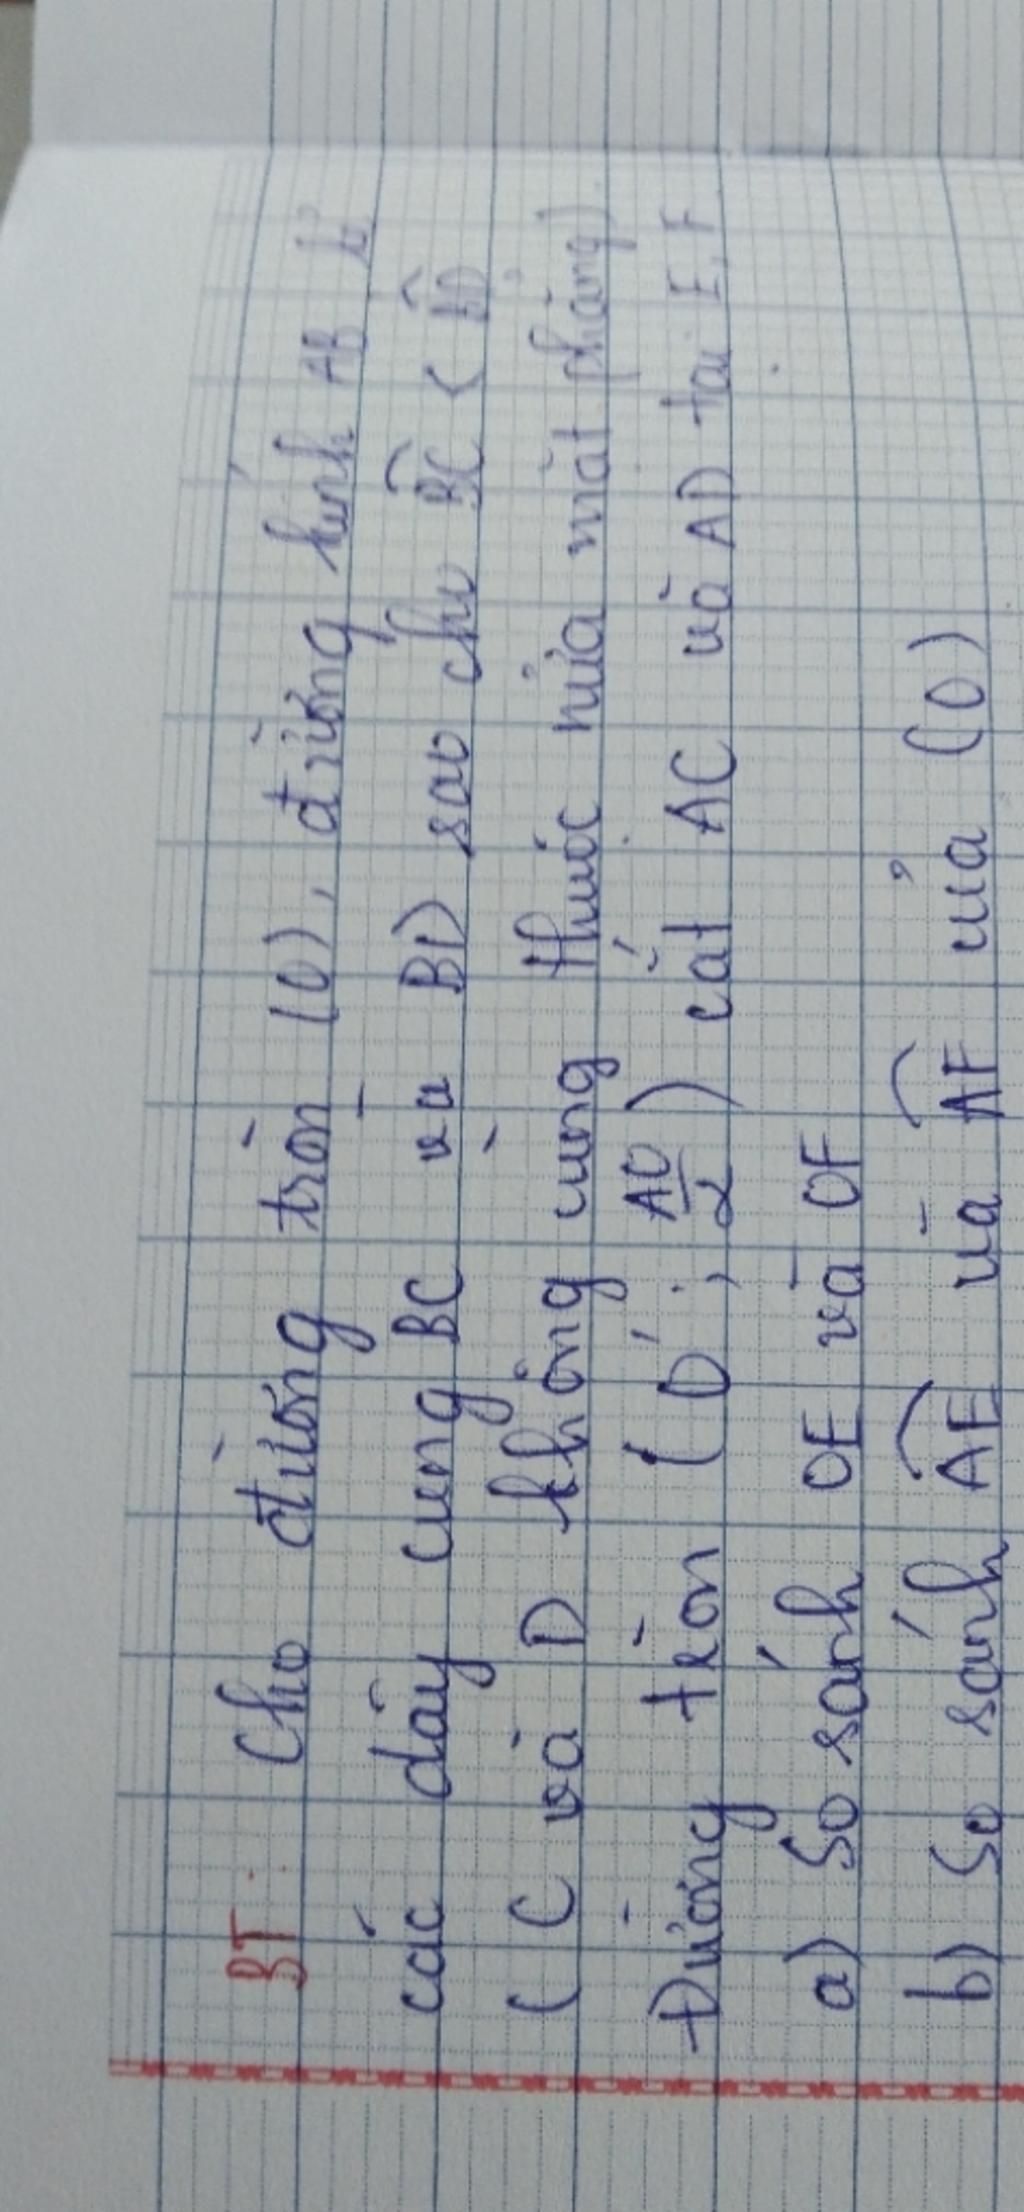 BT Cho đường tròn (O), đường kính AB
các dây cung BC và BD sao cho BC < BD
( C và D không cùng thuộc nửa mặt phẳng)
Đường tròn (O' ; AO/2) cắt AC và AD tại E, F
a) So sánh OE và OF
b) So sánh AE và AF của (O)